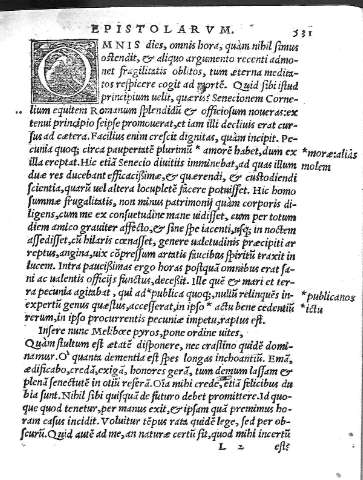 EPISTOLARVM. 531
OMNIS dies, omnis hora, quàm nihil simus
ostendit, & aliquo argumento recenti admo-
net fragilitatis oblitos, tum æterna medita-
tos respicere cogit ad mortẽ. Quid sibi istud
principium uelit, quæris? Senecionem Corne-
lium equitem Romanum splẽdidũ & officiosum noueras: ex
tenui principio seipse promouerat, et iam illi decliuis erat cur-
sus ad cætera. Facilius enim crescit dignitas, quàm incipit. Pe-
cunia quoq; circa paupertatẽ plurimũ * amorẽ habet, dum ex
illa ereptat. Hic etiã Senecio diuitijs imminebat, ad quas illum
duæ res ducebant efficacissimæ, & quærendi, & custodiendi
scientia, quarũ uel altera locupletẽ facere potuisset. Hic homo
summæ frugalitatis, non minus patrimonij quàm corporis di-
ligens, cum me ex consuetudine mane uidisset, cum per totum
diem amico grauiter affecto, & sine spe iacenti, usq; in noctem
assedisset, cũ hilaris cœnasset, genere ualetudinis præcipiti ar-
reptus, angina, uix cõpressum arctatis faucibus spiritũ traxit in
lucem. Intra paucissimas ergo horas postquã omnibus erat sa-
ni ac ualentis officijs functus, decessit. Ille qui & mari et ter-
ra pecunia agitabat, qui ad * publica quoq; nullũ relinquẽs in-
expertũ genus quæstus, accesserat, in ipso * actu bene cedentiũ
rerum, in ipso procurrentis pecuniæ impetu, raptus est.
Insere nunc Melibœe pyros, pone ordine uites,
Quàm stultum est ætatẽ disponere, nec crastino quidẽ domi-
namur. O quanta dementia est spes longas inchoantiũ. Emã,
ædificabo, credã, exigã, honores gerã, tum demum lassam &
plenã senectutẽ in otiũ referã. Oĩa mihi crede, etiã felicibus du
bia sunt. Nihil sibi quisquã de futuro debet promittere. Id quo-
que quod tenetur, per manus exit, & ipsam quã premimus ho-
ram casus incidit. Voluitur tẽpus rata quidẽ lege, sed per ob-
scurũ. Quid autẽ ad me, an naturæ certũ sit, quod mihi incertũ
L 2 est?
*morẽ: aliâs
molem
*publicanos
*ictu